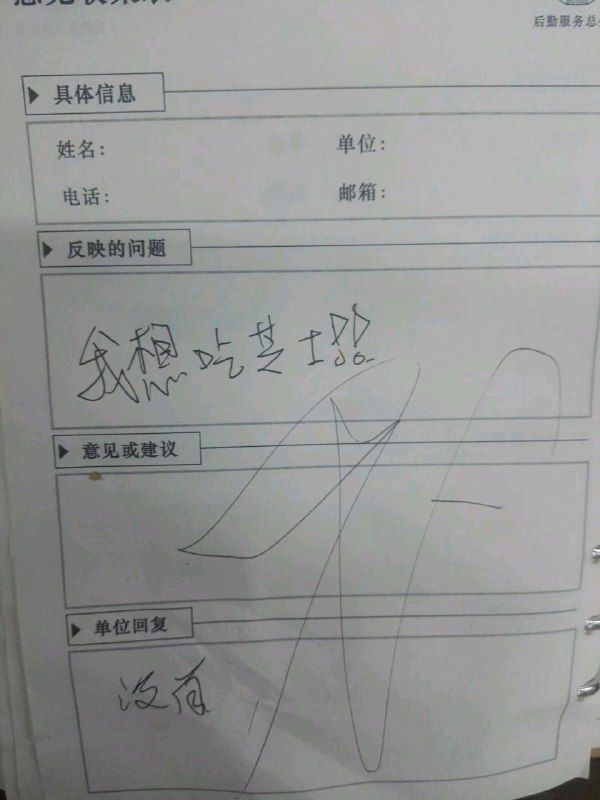 后勤服务总
具体信息
姓名： 单位：
电话： 邮箱：
反映的问题
我想吃芝士!!
意见或建议
单位回复
没有